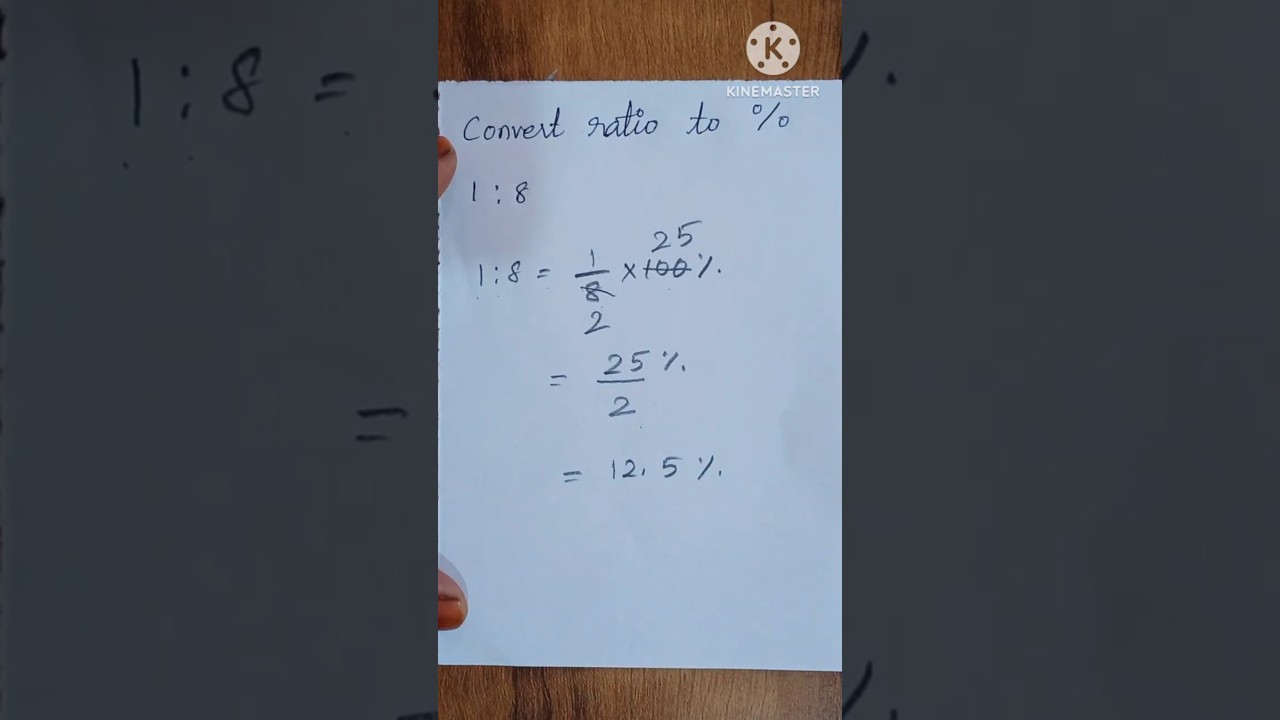 KINEMASTER
Convert ratio to %
1 : 8
1 : 8 = 1/8 × 100 %
25
2
= 25/2 %
= 12.5 %
1 : 8 =
=